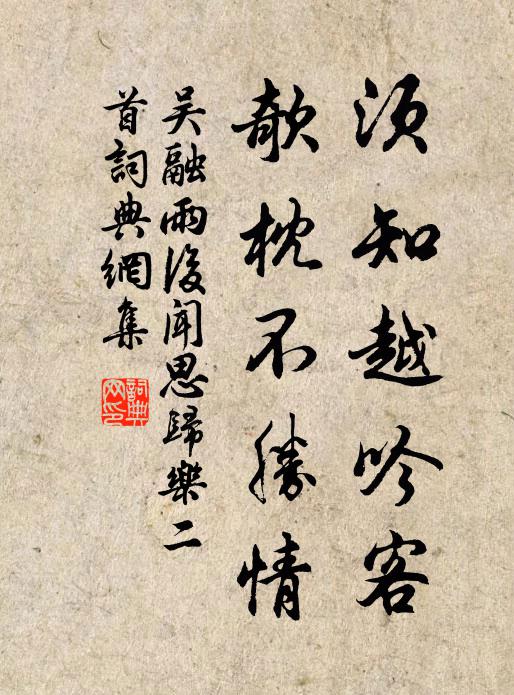 須知越吟客
欹枕不勝情
吳融雨後聞思歸樂二
首詞典網集
詞典
网印